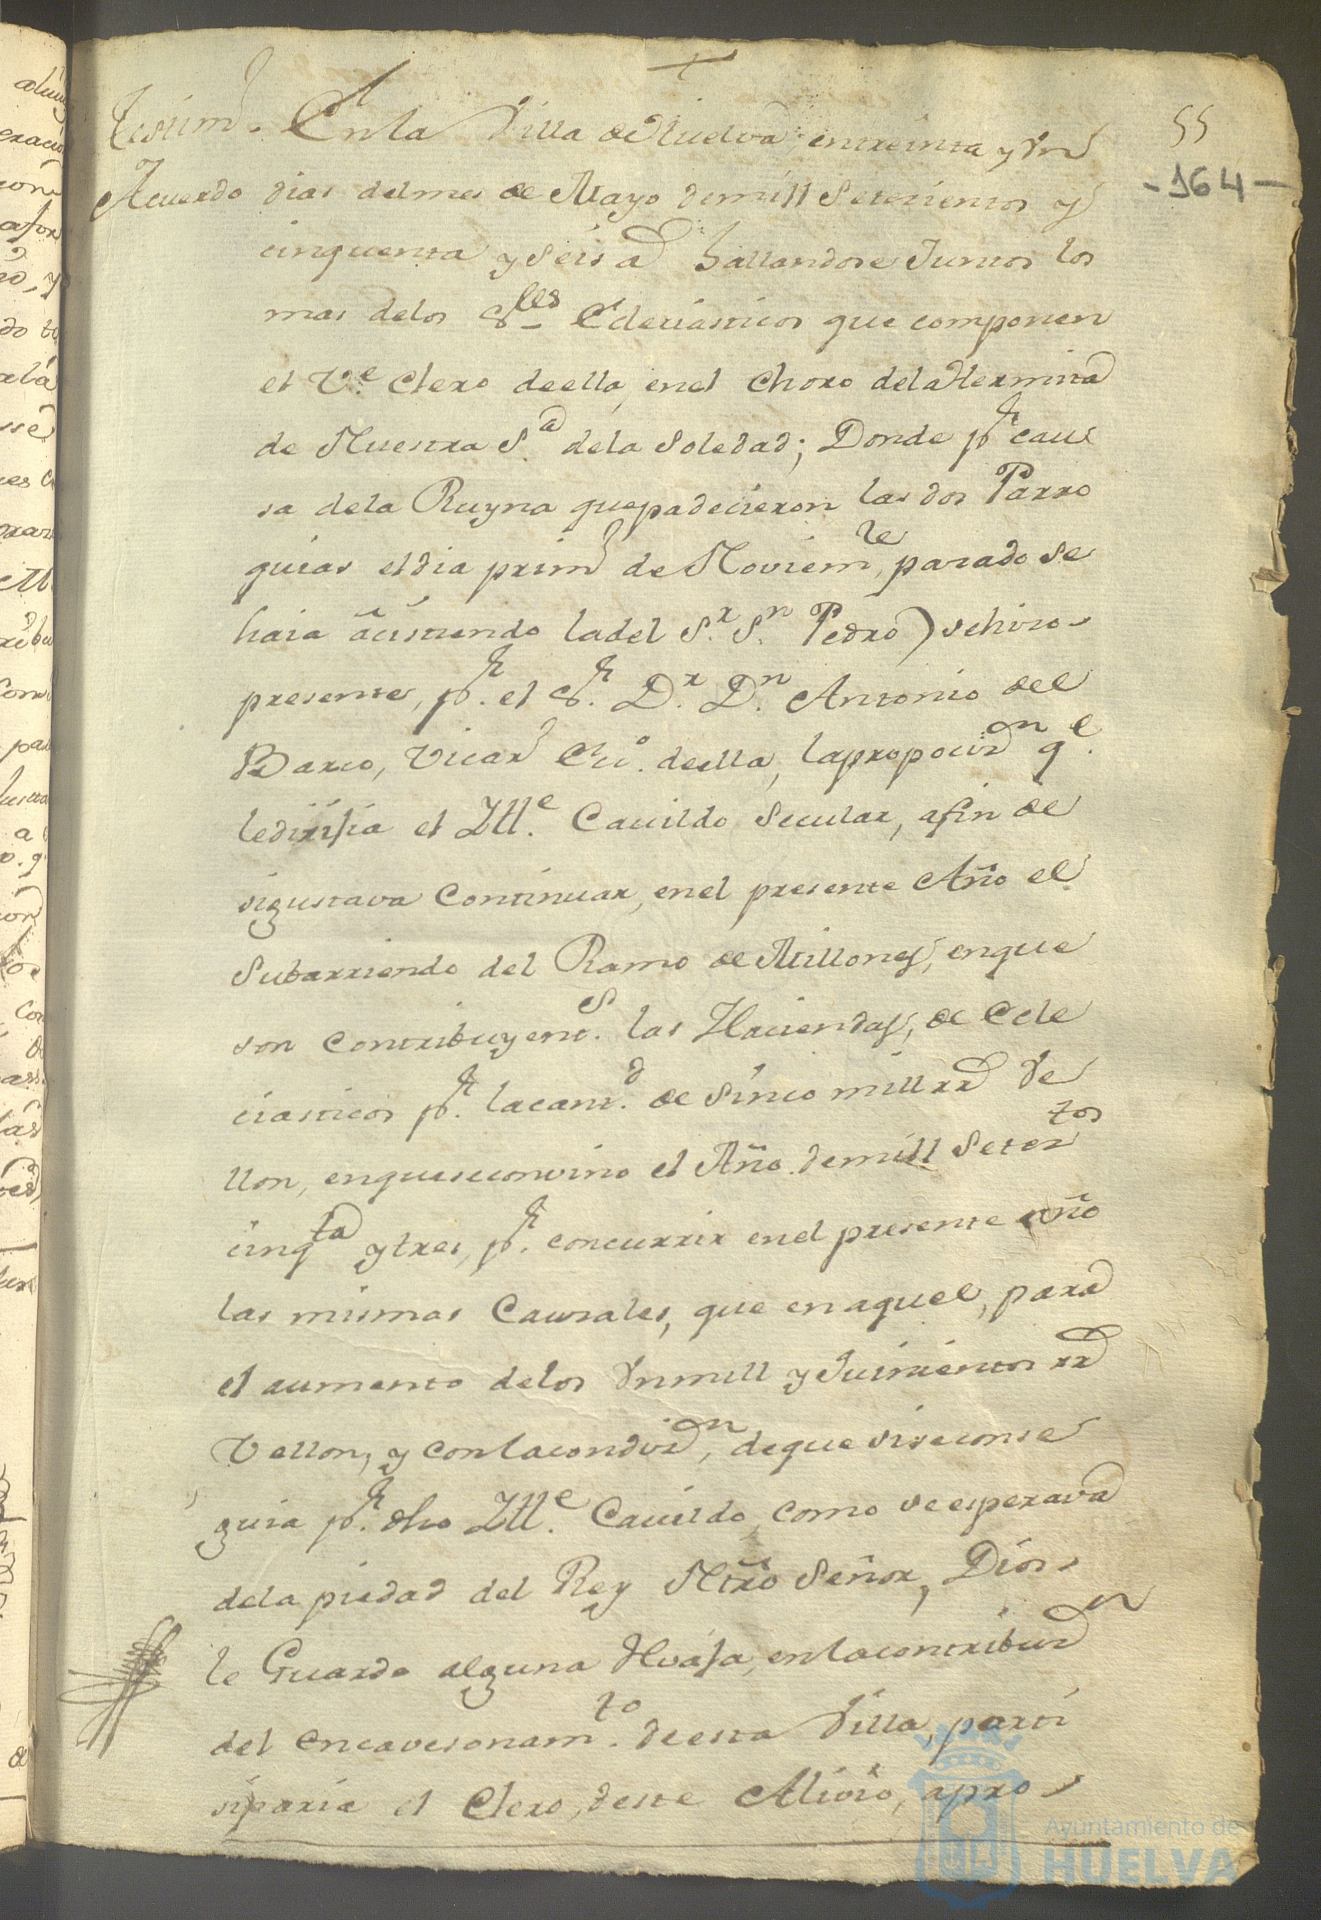 +
55
-164-
Testim.º En la Villa de Huelva, en treinta y un
Acuerdo dias del mes de Mayo de mill Setecientos y
cinquenta y Seis a.s hallandose Juntos los
mas de los S.res Eclesiasticos que componen
el V.e Clero de ella, en el Choro de la Hermita
de Nuestra S.a de la Soledad; Donde p.r cau
sa de la Ruyna que padecieron las dos Parro
quias el dia prim.o de Noviem.re, pasado se
haia asistiendo la del S.r S.n Pedro) se hizo
presente, p.r el S.r D.r D.n Antonio del
Barco, Vicar.o Ecc.o de ella, la proposiz.n q.e
le dirijia el Ill.e Cavildo Secular, a fin de
si gustava Continuar, en el presente Año el
Subarriendo del Ramo de Millones, en que
son Contribuyent.s las Haciendas, de Ecle
ciasticos p.r la cant.d de Sinco mill rr.s Ve
llon, en que se convino el Año de mill Setez.tos
cinq.ta y tres, p.r concurrir en el presente año
las mismas Causales, que en aquel, para
el aumento de los Un mill y quinientos rr.s
Vellon, y con la condiz.n, de que si se conse
guia p.r dho Ill.e Cavildo, como se esperava
de la piedad del Rey Ntro Señor, Dios
le Guarde alguna Revaja, en la contribuz.n
del encavesonam.to de esta Villa, parti
siparia el Clero, deste Alivio, apro
Ayuntamiento de
HUELVA